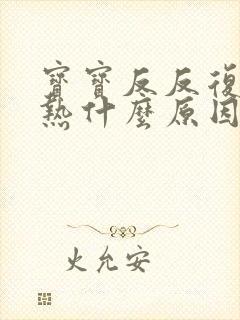 寶寶反反復
熱什麼原因
火允安